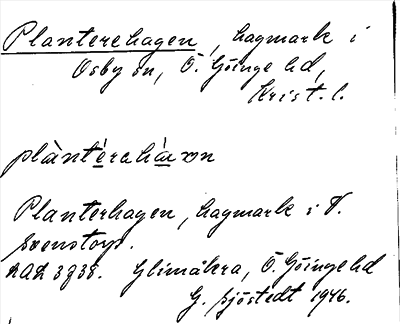 Planterehagen, hagmark i
Osby sn, Ö. Göinge hd,
Krist. l.
plànteréhàɷn
Planterhagen, hagmark i V.
Svenstorp.
Glimåkra, Ö. Göinge hd
G. Sjöstedt 1946.